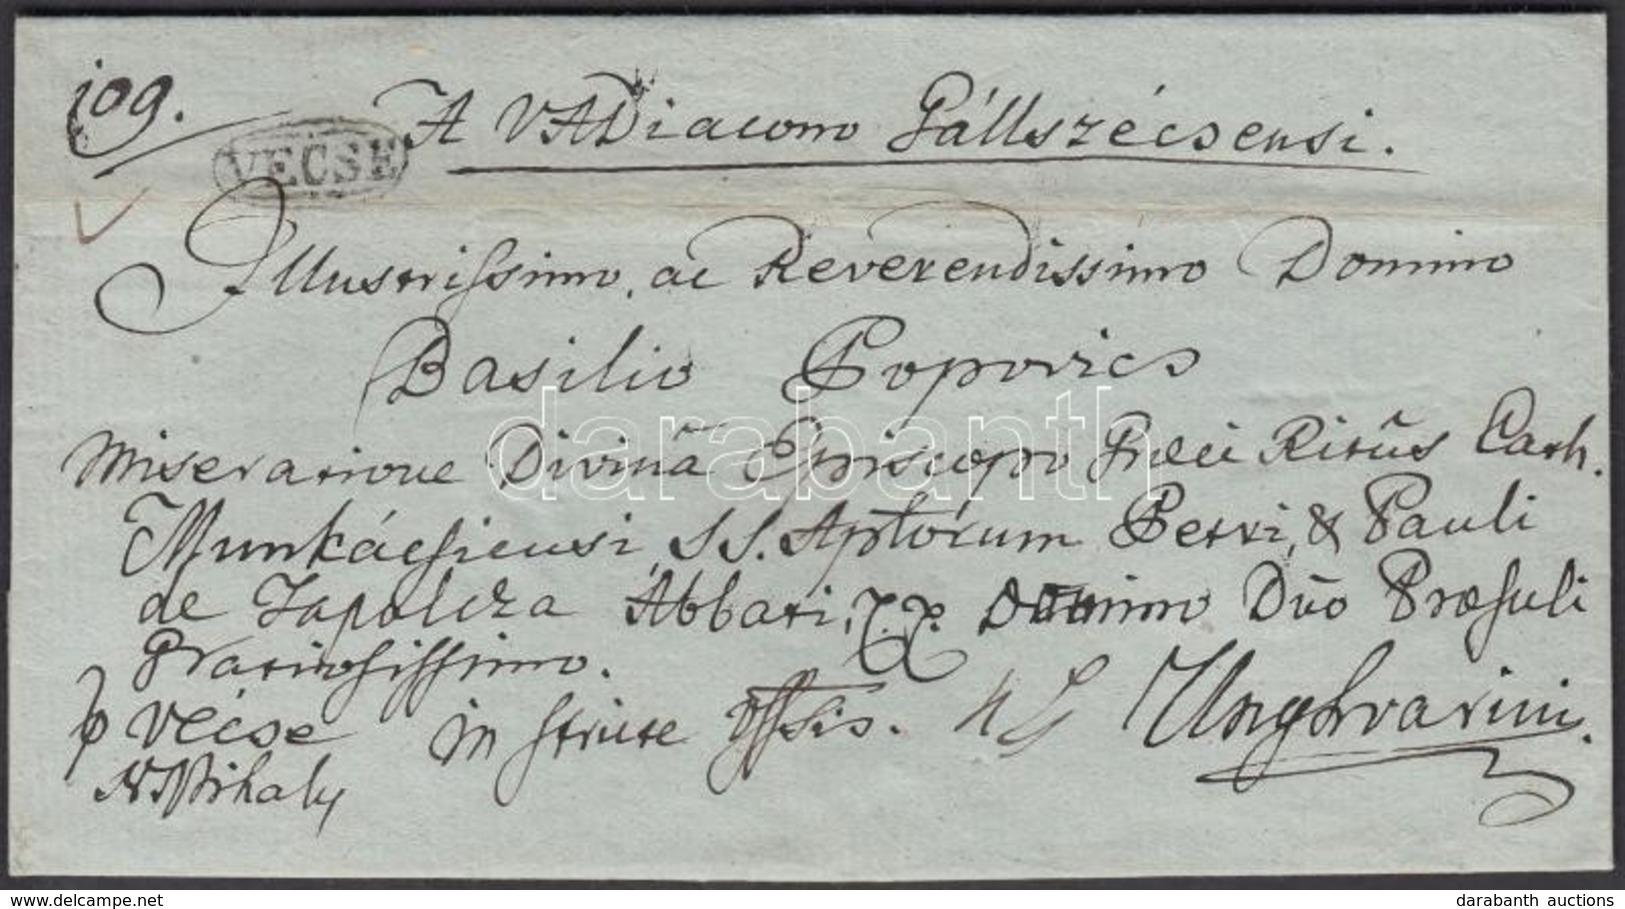 109.
A VADiacono Gállszécsensi.
VECSE
Illustrissimo, ac Reverendissimo Domino
Basilio Popovics
Miseratione Divinâ Episcopo Graeci Ritûs Cath.
Munkácsiensi, SS. Aptorum Petri, & Pauli
de Tapolcza Abbati, Domino Dno Praesuli
Gratiosissimo.
p Vécse in stricte offsis. Unghvarini.
N Mihaly
darabanth
© delcampe.net
darabanth auctions